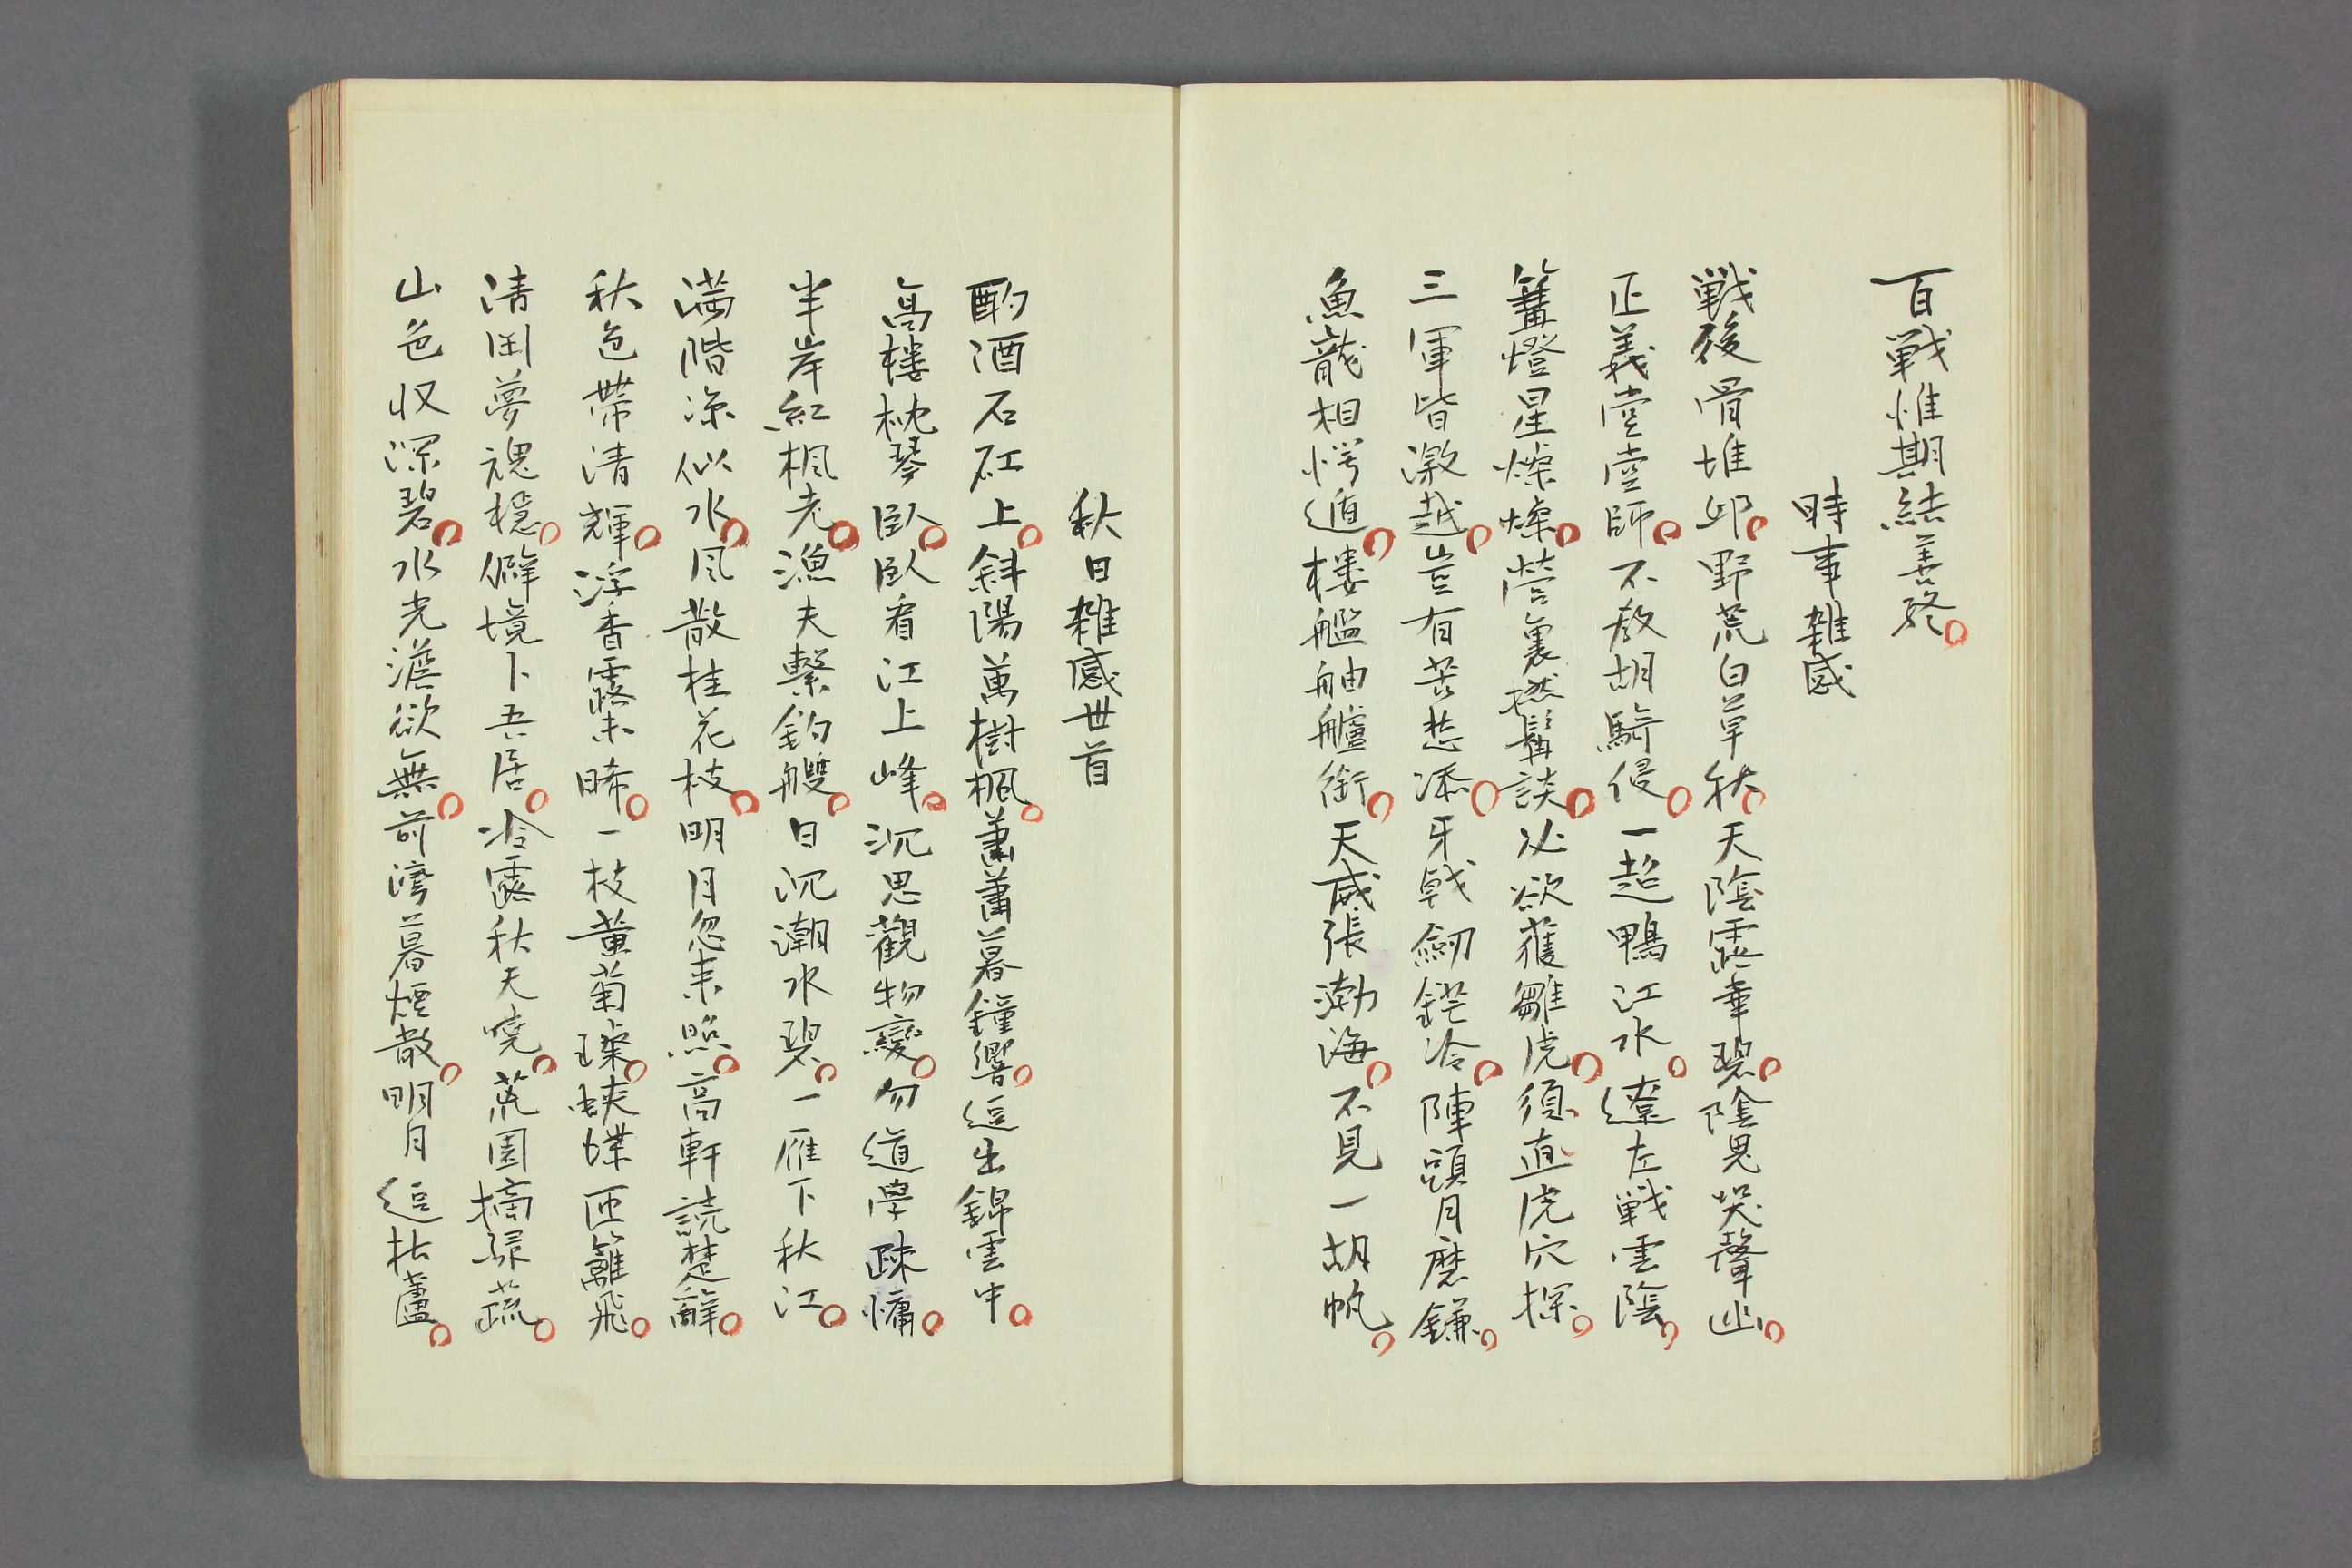 百戦惟期結善終
時事雑感
戦後骨堆邱野荒白草秋天陰露華碧陰鬼哭聲幽
正義堂堂師不教胡騎侵一超鴨江水遼左戦雲陰
篝燈星燦燦營裏撚鬚談必欲獲雛虎須直虎穴探
三軍皆激越豈有苦愁添牙戟劔鋩冷陣頭月磨鎌
魚龍相愕遁樓艦舳艫銜天威張渤海不見一胡帆
秋日雑感廿首
酌酒石矼上斜陽萬樹楓蕭蕭暮鐘響逗出錦雲中
高樓枕琴臥臥看江上峰沉思觀物變勿道學疎慵
半岸紅楓老漁夫繋釣艭日沉潮水碧一雁下秋江
満階凉似水风散桂花枝明月忽来照高軒読楚辭
秋色帯清輝浮香露未晞一枝黄菊璨蛺蝶匝籬飛
清閑夢魂穏僻境卜吾居冷露秋天曉荒園摘緑蔬
山色収深碧水光澹欲無前湾暮煙散明月逗枯蘆